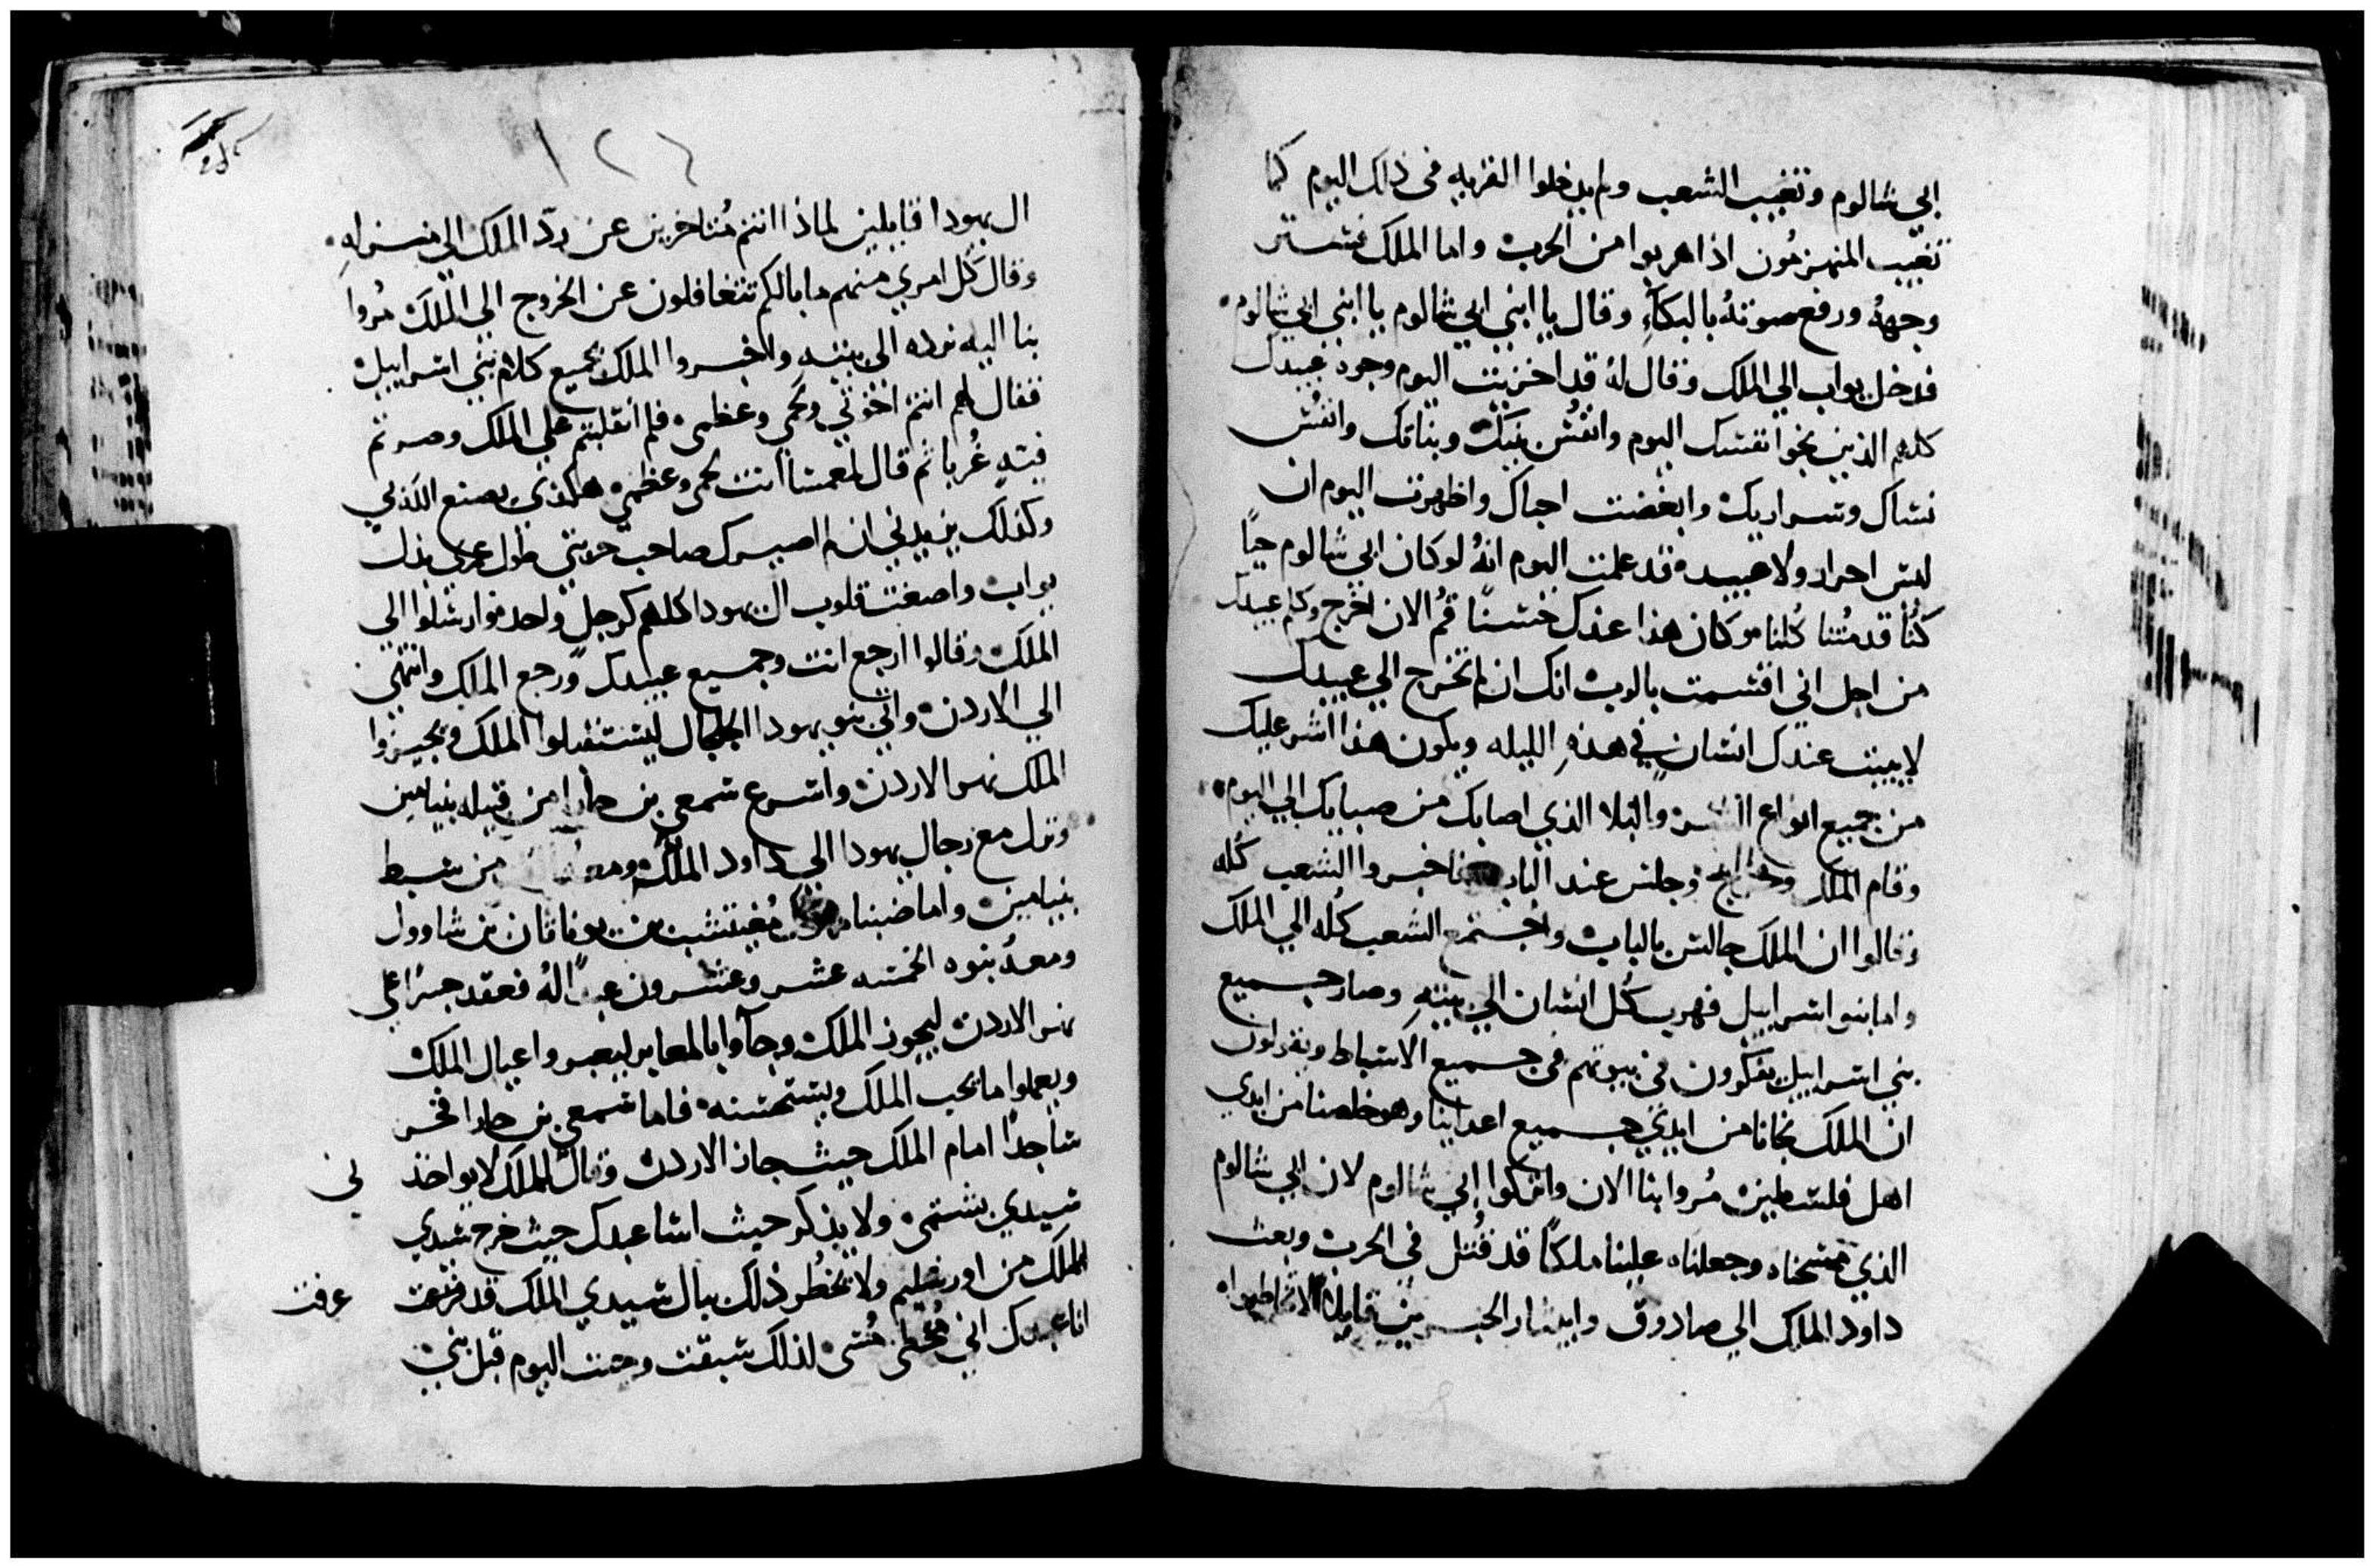 ابي شالوم وتغيب الشعب ولم يدخلوا القريه في ذلك اليوم كما
تغيب المنهزمون اذا هربوا من الحرب واما الملك فستر
وجهه ورفع صوته بالبكاء وقال يا ابني ابي شالوم يا ابني ابي شالوم
فدخل يواب الي الملك وقال له قد اخزيت اليوم وجوه عبيدك
كلهم الذين نجوا نفسك اليوم وانفس بنيك وبناتك وانفس
نساك وسراريك وابغضت احباك واظهرت اليوم ان
ليس احرار ولا عبيد قد علمت اليوم انه لو كان ابي شالوم حيا
كنا قد متنا كلنا وكان هذا عندك حسنا قم الان اخرج وكلم عبيدك
من اجل اني اقسمت بالرب انك ان لم تخرج الي عبيدك
لا يبيت عندك انسان في هذه الليله ويكون هذا اشر عليك
من جميع انواع والبلا الذي اصابك من صبايك الي اليوم
وقام الملك وجلس عند الباب فاخبروا الشعب كله
وقالوا ان الملك جالس بالباب واجتمع الشعب كله الي الملك
واما بنوا اسراييل فهرب كل انسان الي بيته وصار جميع
بني اسراييل يفكرون في بيوتهم في جميع الاسباط ويقولون
ان الملك نجانا من ايدي جميع اعداينا وهو خلصنا من ايدي
اهل فلسطين مروا بنا الان واتركوا ابي شالوم لان ابي شالوم
الذي مسحناه وجعلناه علينا ملكا قد قتل في الحرب وبعث
داود الملك الي صادوق وابيثار الحبرين قايلا
١٢٤
ال يهودا قايلين لماذا انتم متاخرين عن رد الملك الي منزله
وقال كل امري منهم ما بالكم تتغافلون عن الخروج الي الملك مروا
بنا اليه نرده الي بيته واخبروا الملك بجميع كلام بني اسراييل
فقال لهم انتم اخوتي ولحمي وعظمي فلم انقلبتم علي الملك وصرتم
فيه غربا ثم قال لعمسا انت لحمي وعظمي هكذي يصنع الله بي
وكذلك يزيدني ان لم اصيرك صاحب حربتي طول عمري بدل
يواب واصغت قلوب ال يهودا كلهم كرجل واحد وارسلوا الي
الملك وقالوا ارجع انت وجميع عبيدك ورجع الملك وانتهي
الي الاردن واتي بنو يهودا الجلجال ليستقبلوا الملك ويجيزوا
الملك نهر الاردن واسرع شمعي بن جارا من قبيله بنيامين
ونزل مع رجال يهودا الي داود الملك من سبط
بنيامين واما ضبنا مفيبشت بن يوناثان بن شاوول
ومعه بنوه الخمسه عشر وعشرون عبدا له فعقد جسرا علي
نهر الاردن ليجوز الملك وجاوا بالمعابر ليعبروا عيال الملك
ويعملوا ما يحب الملك ويستحسنه فاما شمعي بن جارا فخر
ساجدا امام الملك حيث جاز الاردن وقال للملك لا يواخذني
سيدي بشتمي ولا يذكر حيث اسا عبدك حيث خرج سيدي
الملك من اورشليم ولا يخطر ذلك ببال سيدي الملك قد عرفت
انا عبدك اني مخطي مسي لذلك سبقت وجيت اليوم قبل بني